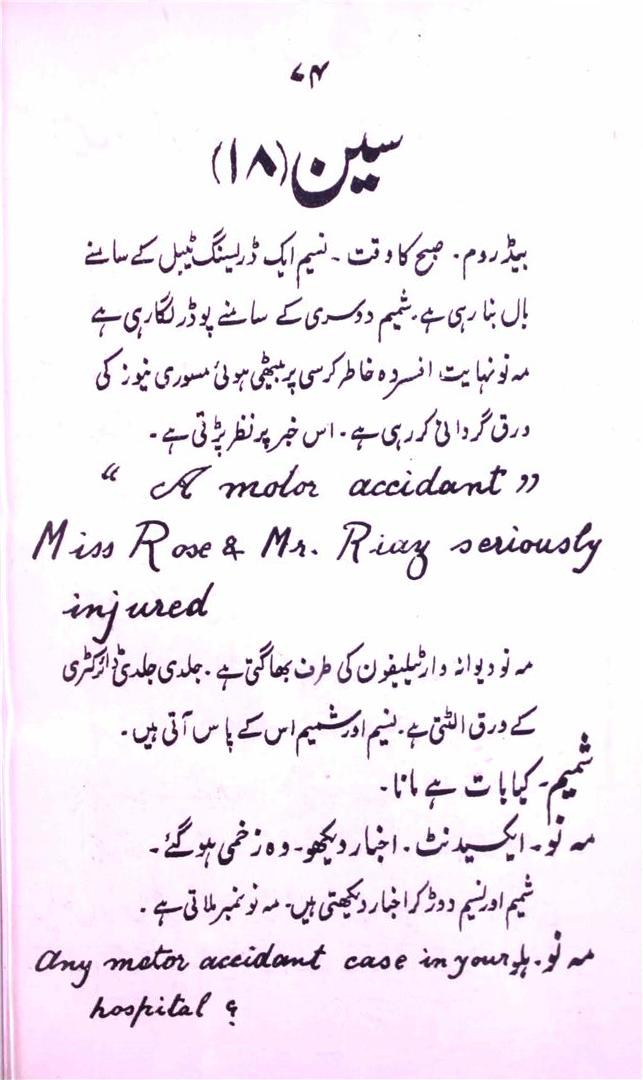 ۷۴
سین (۱۸)
بیڈ روم۔ صبح کا وقت ۔ نسیم ایک ڈریسنگ ٹیبل کے سامنے
بال بنا رہی ہے۔ شمیم دوسری کے سامنے پوڈر لگا رہی ہے
مہ نو نہایت افسردہ خاطر کرسی پر بیٹھی ہوئی مسوری نیوز کی
ورق گردانی کر رہی ہے۔ اس خبر پر نظر پڑتی ہے۔
“ A motor accidant ”
Miss Rose & Mr. Riaz seriously
injured
مہ نو دیوانہ وار ٹیلیفون کی طرف بھاگتی ہے۔ جلدی جلدی ڈائرکٹری
کے ورق الٹتی ہے۔ نسیم اور شمیم اس کے پاس آتی ہیں۔
شمیم۔ کیا بات ہے مانا۔
مہ نو۔ ایکسیڈنٹ۔ اخبار دیکھو۔ وہ زخمی ہو گئے۔
شمیم اور نسیم دوڑ کر اخبار دیکھتی ہیں۔ مہ نو نمبر ملاتی ہے۔
مہ نو۔ ہلو Any motor accidant case in your
hospital ?